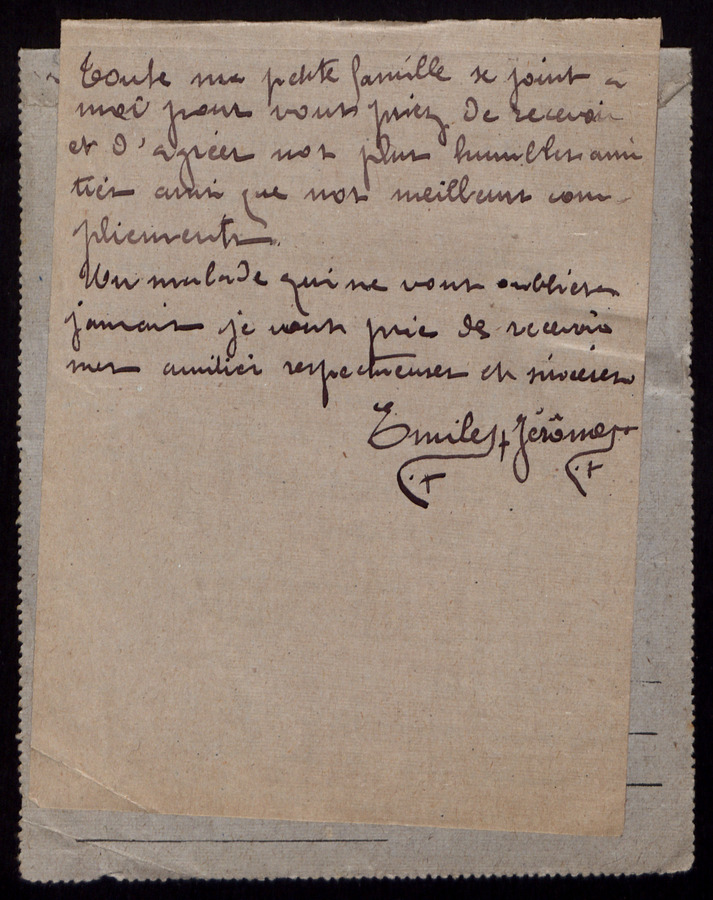 Toute ma petite famille se joint a
moi pour vous priez de recevoir
et d'agréer nos plus humbles ami
tiés ainsi que nos meilleurs com-
pliements.
Un malade qui ne vous oubliera
jamais je vous prie de recevoir
mes amitiés respectueuses et sincères
Emile Jérôme